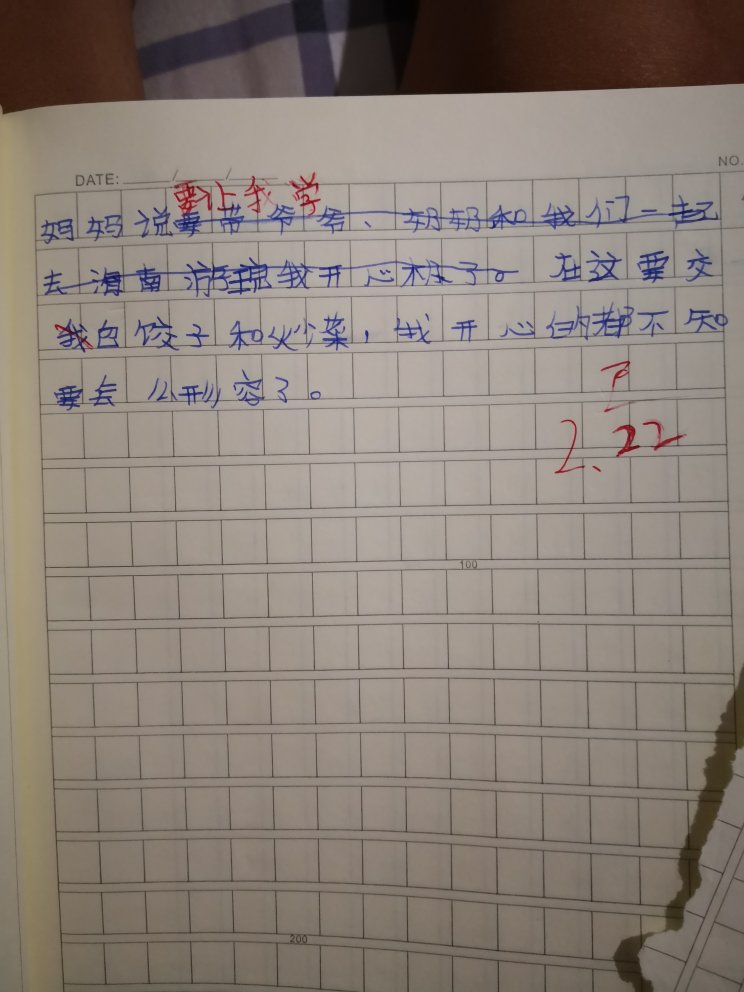 NO.
DATE: / /
要让我学
妈妈说要带爷爷、奶奶和我们一起
去海南游玩我开心极了。在这要交
我包饺子和火菜,我开心的都不知
要去么形容了。
2.22
100
200